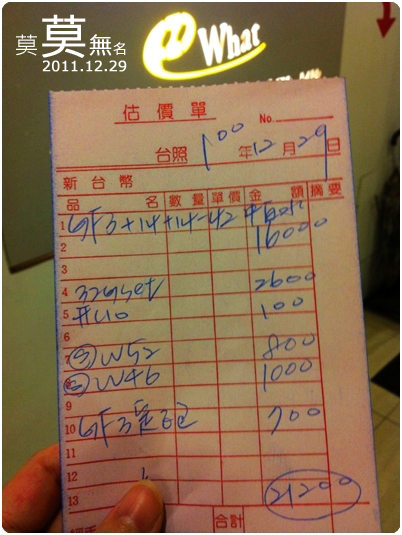 莫莫無名
2011.12.29
e What
估價單
No.
台照 100年12月29日
新台幣
品名 數量 單價 金額 摘要
1 GF3+14+14-42
2 16000
3
4 32G set 2600
5 100
6
7 W52 800
8 W46 1000
9
10 GF3 700
11
12
13 21200
合計